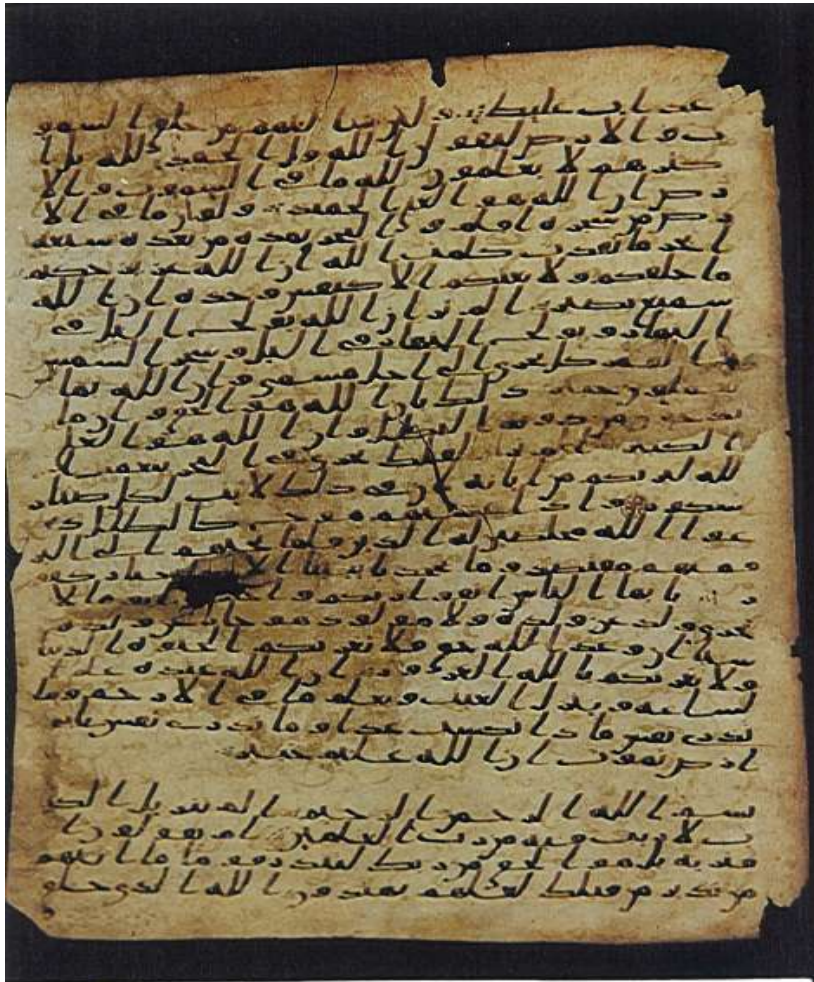 عذاب غليظ ولئن سالتهم من خلق السمو
ت والارض ليقولن الله قل الحمد لله بل ا
كثرهم لا يعلمون لله ما في السموت والا
رض ان الله هو الغني الحميد ولو ان ما في الا
رض من شجرة اقلم والبحر يمده من بعده سبعة
ابحر ما نفدت كلمت الله ان الله عزيز حكيم
ما خلقكم ولا بعثكم الا كنفس وحدة ان الله
سميع بصير الم تر ان الله يولج اليل في
النهار ويولج النهار في اليل وسخر الشمس
والقمر كل يجري الى اجل مسمى وان الله بما
تعملون خبير ذلك بان الله هو الحق وان ما
يدعون من دونه البطل وان الله هو العلي
الكبير الم تر ان الفلك تجري في البحر بنعمت ا
لله ليريكم من ايته ان في ذلك لايت لكل صبار
شكور واذا غشيهم موج كالظلل د
عوا الله مخلصين له الدين فلما نجيهم الى البر
فمنهم مقتصد وما يجحد بايتنا الا ختار كفو
ر يايها الناس اتقوا ربكم يوما لا
يجزي ولد عن ولده ولا مولود هو جاز عن ولده
شيا ان وعد الله حق فلا تغرنكم الحيوة الدنيا
ولا يغرنكم بالله الغرور ان الله عنده علم ا
لساعة وينزل الغيث ويعلم ما في الارحم وما
تدري نفس ماذا تكسب غدا وما تدري نفس باي
ارض تموت ان الله عليم خبير
بسم الله الرحمن الرحيم الم تنزيل الكت
ب لا ريب فيه من رب العلمين ام يقولون ا
فتريه بل هو الحق من ربك لتنذر قوما ما اتيهم
من نذير من قبلك لعلهم يهتدون الله الذي خلق